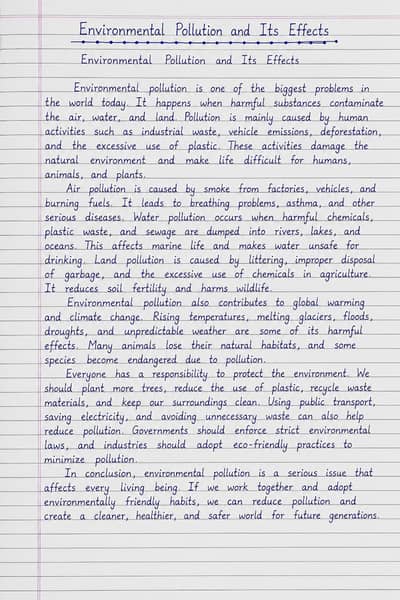 Environmental Pollution and Its Effects
Environmental Pollution and Its Effects
Environmental pollution is one of the biggest problems in
the world today. It happens when harmful substances contaminate
the air, water, and land. Pollution is mainly caused by human
activities such as industrial waste, vehicle emissions, deforestation,
and the excessive use of plastic. These activities damage the
natural environment and make life difficult for humans,
animals, and plants.
Air pollution is caused by smoke from factories, vehicles, and
burning fuels. It leads to breathing problems, asthma, and other
serious diseases. Water pollution occurs when harmful chemicals,
plastic waste, and sewage are dumped into rivers, lakes, and
oceans. This affects marine life and makes water unsafe for
drinking. Land pollution is caused by littering, improper disposal
of garbage, and the excessive use of chemicals in agriculture.
It reduces soil fertility and harms wildlife.
Environmental pollution also contributes to global warming
and climate change. Rising temperatures, melting glaciers, floods,
droughts, and unpredictable weather are some of its harmful
effects. Many animals lose their natural habitats, and some
species become endangered due to pollution.
Everyone has a responsibility to protect the environment. We
should plant more trees, reduce the use of plastic, recycle waste
materials, and keep our surroundings clean. Using public transport,
saving electricity, and avoiding unnecessary waste can also help
reduce pollution. Governments should enforce strict environmental
laws, and industries should adopt eco-friendly practices to
minimize pollution.
In conclusion, environmental pollution is a serious issue that
affects every living being. If we work together and adopt
environmentally friendly habits, we can reduce pollution and
create a cleaner, healthier, and safer world for future generations.